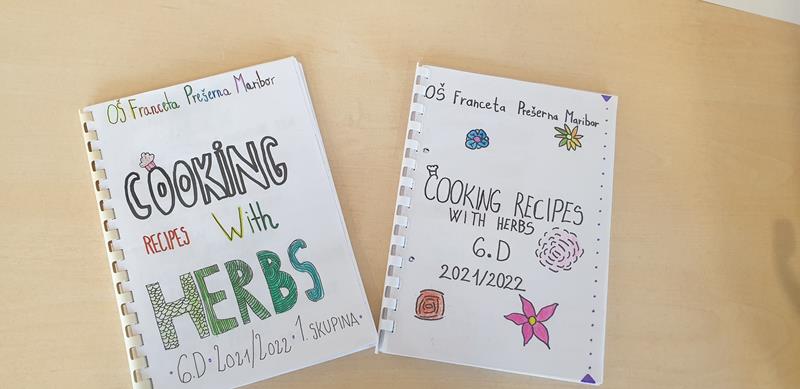 OŠ Franceta Prešerna Maribor
COOKING
RECIPES With
HERBS
6.D 2021/2022 1. SKUPINA
OŠ Franceta Prešerna Maribor
COOKING RECIPES
WITH HERBS
6.D
2021/2022